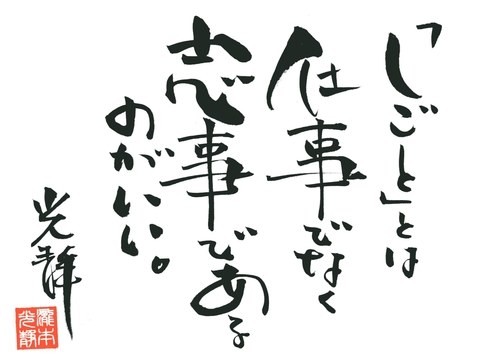 「しごと」とは
仕事でなく
志事である
のがいい。
光靜
瀧本光静